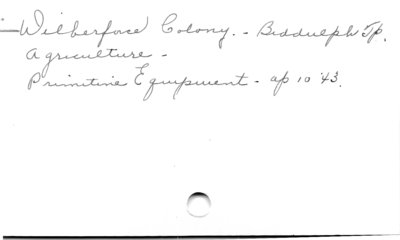 Wilberforce Colony. - Biddulph Tp.
Agriculture -
Primitive Equipment - ap 10 '43.